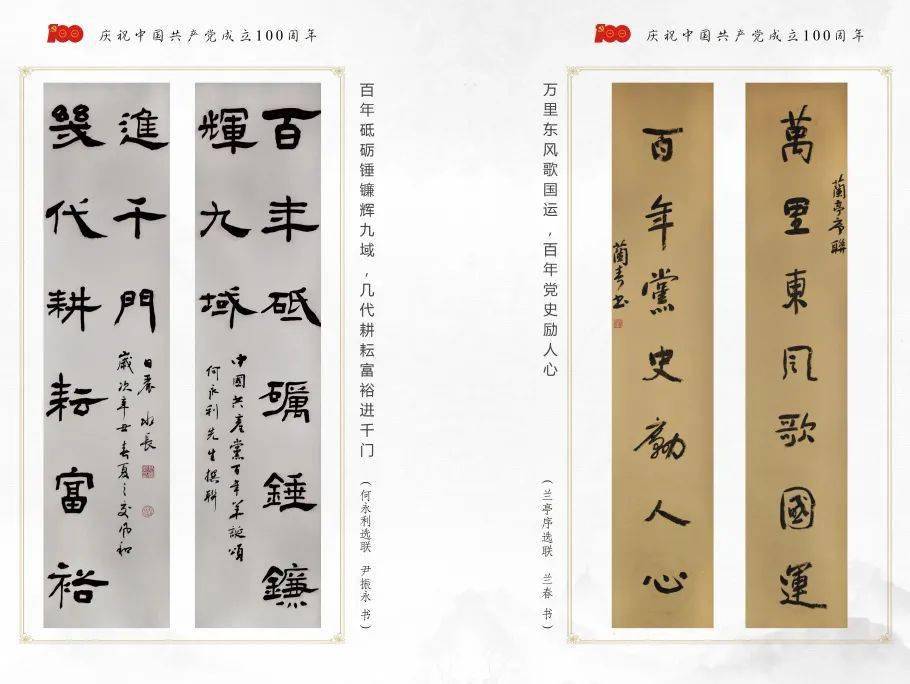 100 庆祝中国共产党成立100周年
百年砥礪錘鐮
輝九域
中國共產黨百年華誕頌
何永利先生撰聯
幾代耕耘富裕
進千門
歲次辛丑春夏之交風和
日麗 永長
百年砥砺锤镰辉九域,几代耕耘富裕进千门
(何永利选联 尹振永 书)
100 庆祝中国共产党成立100周年
萬里東風歌國運
蘭亭序聯
百年黨史勵人心
蘭春书
万里东风歌国运,百年党史励人心
(兰亭序选联 兰春 书)